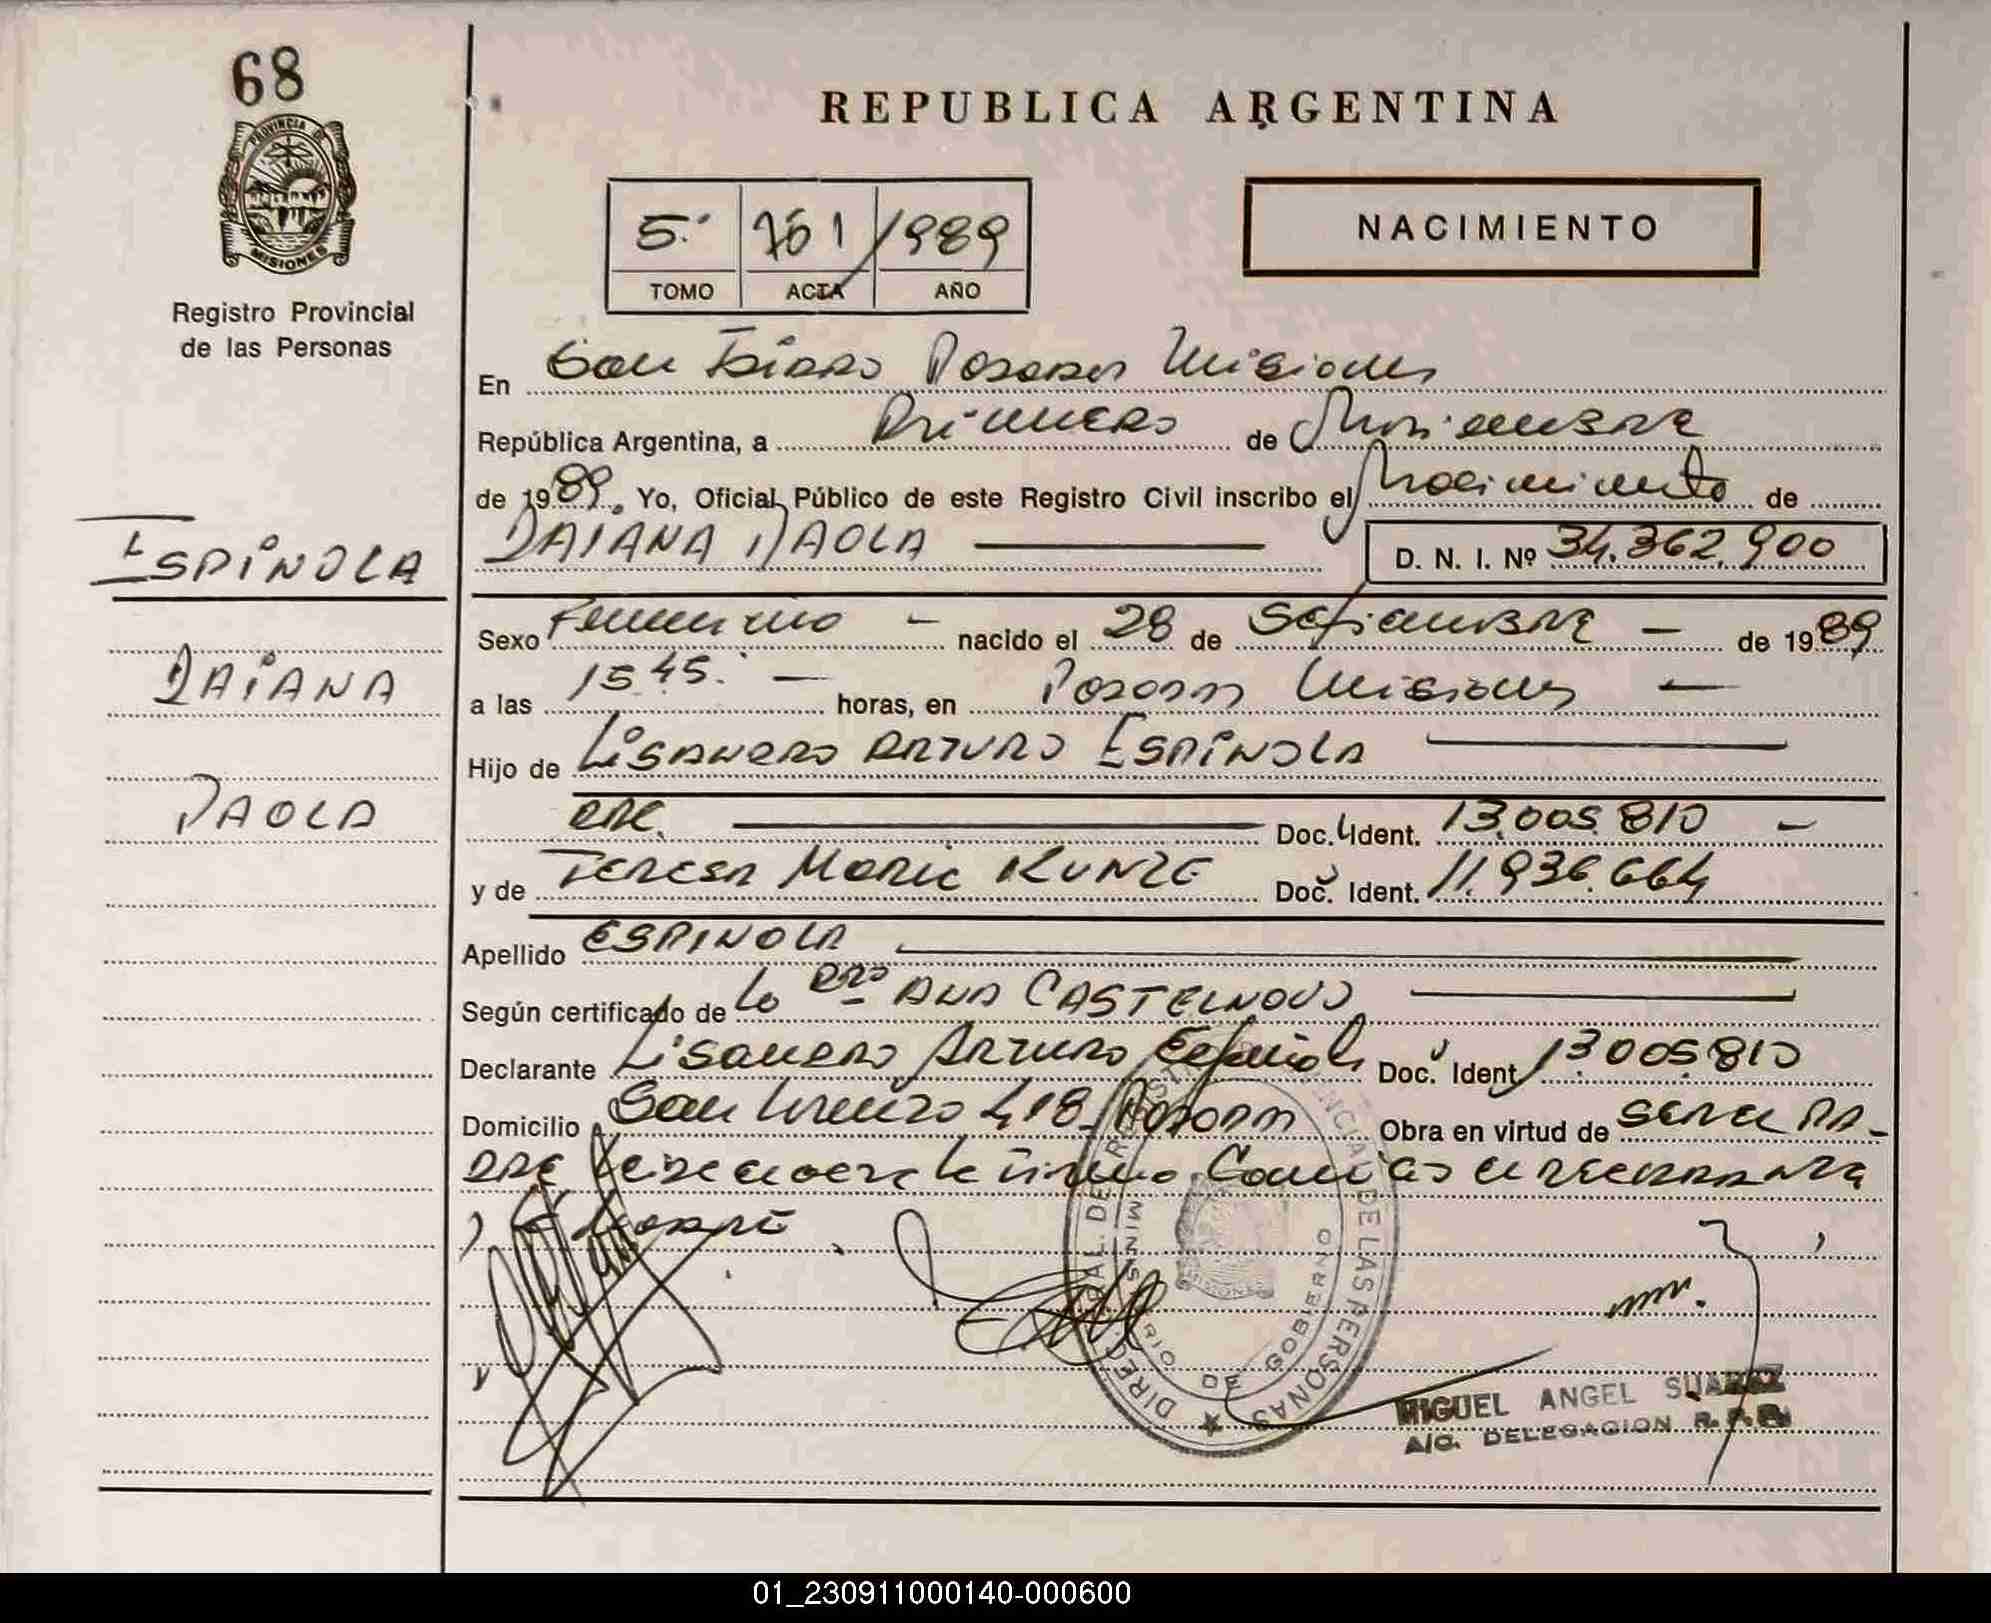 68
PROVINCIA DE
MISIONES
Registro Provincial
de las Personas
ESPINOLA
DAIANA
PAOLA
REPUBLICA ARGENTINA
5.- 761 /1989
TOMO ACTA AÑO
NACIMIENTO
En San Isidro Posadas Misiones
República Argentina, a Primero de Noviembre
de 1989. Yo, Oficial Público de este Registro Civil inscribo el Nacimiento de
DAIANA PAOLA D. N. I. Nº 34.362.900
Sexo Femenino - nacido el 28 de Setiembre - de 1989
a las 15.45. - horas, en Posadas Misiones -
Hijo de Lisandro Arturo Espínola
Doc. Ident. 13.005.810 -
y de Teresa Marie Kunze Doc. Ident. 11.936.664
Apellido ESPINOLA
Según certificado de la Dra ANA CASTELNOVO
Declarante Lisandro Arturo Espínola Doc. Ident. 13.005.810
Domicilio San Lorenzo 418 Posadas Obra en virtud de ser el pa-
dre
DIREC. GRAL. DE REGISTRO PROVINCIAL DE LAS PERSONAS
MINISTERIO DE GOBIERNO
MIGUEL ANGEL SUAREZ
A/C. DELEGACION R.P.P.
01_230911000140-000600